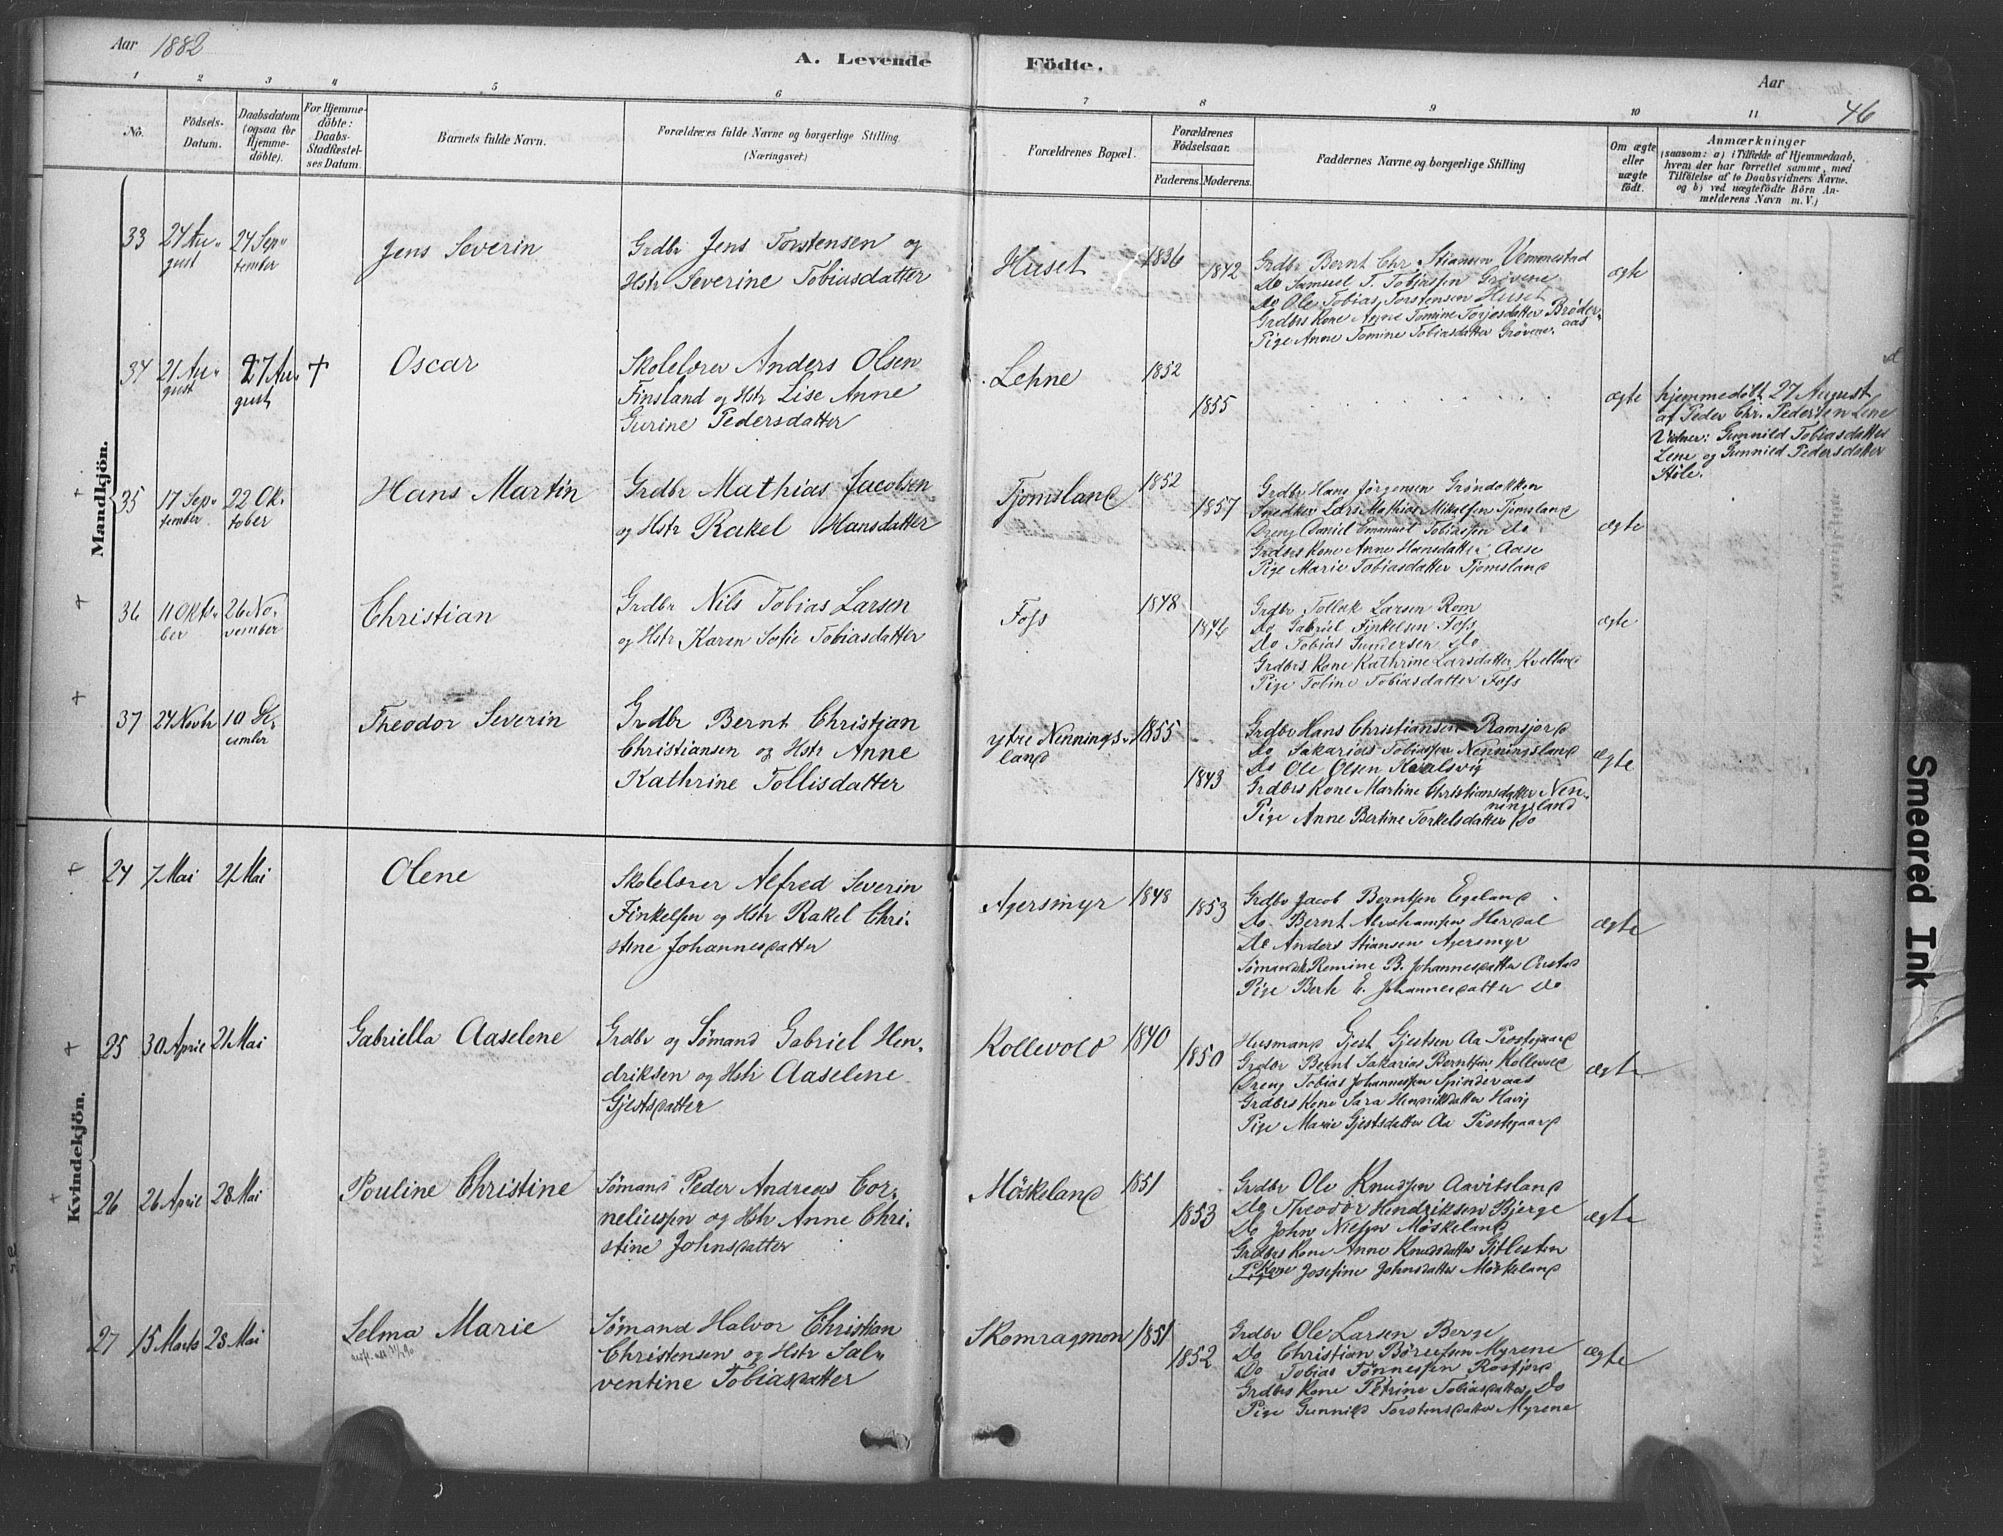 Aar 1882
A. Levende Födte.
Aar
46
1 2 3 4 5 6 7 8 9 10 11
No.
Födsels-
Datum.
Daabsdatum
(ogsaa for
Hjemme-
döbte).
For Hjemme-
döbte:
Daabs-
Stadfæstel-
ses Datum.
Barnets fulde Navn.
Forældrenes fulde Navne og borgerlige Stilling
(Næringsvei)
Forældrenes Bopæl.
Forældrenes
Födselsaar.
Faderens. Moderens.
Faddernes Navne og borgerlige Stilling
Om ægte
eller
uægte
födt.
Anmærkninger
(saasom: a) i Tilfælde af Hjemmedaab,
hvem der har forrettet samme, med
Tilföielse af to Daabsvidners Navne.
og b) ved uægtefödte Börn An-
melderens Navn m. V.)
Mandkjön.
33
24 Au-
gust
24 Sep-
tember
Jens Severin
Grdbr Jens Torstensen og
Hstr Severine Tobiasdatter
Huset
1836
1842
Grdbr Bernt Chr Stiansen Vemmestad
Do Samuel T. Tobiassen Grövene
Do Ole Tobias Torstensen Huset
Grdbrs Kone Anne Tomine Torjesdatter Bröder-
aas
Pige Anne Tomine Tobiasdatter Grövene
ægte
34
21 Au-
gust
27 Au-
gust
+
Oscar
Skolelærer Anders Olsen
Finsland og Hstr Lise Anne
Gurine Pedersdatter
Lehne
1852
1855
ægte
hjemmedöbt 27 August
af Peder Chr. Pedersen Lene
Vidner: Gunnild Tobiasdatter
Lene og Gunnild Pedersdatter
Stöle.
35
17 Sep-
tember
22 Ok-
tober
Hans Martin
Grdbr Mathias Jacobsen
og Hstr Rakel Hansdatter
Tjomsland
1852
1857
Grdbr Hans Jörgensen Gröndokken
Lars Mathias Mikalsen Tjomsland
Dreng Daniel Emanuel Tobiassen Do
Grdbrs Kone Anne Hansdatter Aase
Pige Marie Tobiasdatter Tjomsland
ægte
36
11 Okto-
ber
26 No-
vember
Christian
Grdbr Nils Tobias Larsen
og Hstr Karen Sofie Tobiasdatter
Foss
1848
1846
Grdbr Tollak Larsen Rom
Do Gabriel Finkelsen Foss
Do Tobias Gundersen Do
Grdbrs Kone Kathrine Larsdatter Kvelland
Pige Tobine Tobiasdatter Foss
ægte
37
24 Novbr
10 De-
cember
Theodor Severin
Grdbr Bernt Christian
Christiansen og Hstr Anne
Kathrine Tollisdatter
ytre Nennings-
land
1855
1843
Grdbr Hans Christiansen Ramsjord
Do Sakarias Tobiassen Nenningsland
Do Ole Olsen Kvalsvig
Grdbrs Kone Martine Christiansdatter Nen-
ningsland
Pige Anne Bertine Torkelsdatter Do
ægte
Kvindekjön.
24
7 Mai
21 Mai
Olene
Skolelærer Alfred Severin
Finkelsen og Hstr Rakel Chri-
stine Johannesdatter
Agersmyr
1848
1853
Grdbr Jacob Berntsen Egeland
Do Bernt Abrahamsen Herdal
Do Anders Stiansen Agersmyr
Sömandsk Remine B. Johannesdatter Östad
Pige Berte E. Johannesdatter Do
ægte
25
30 April
21 Mai
Gabriella Aaselene
Grdbr og Sömand Gabriel Hen-
driksen og Hstr Aaselene
Gjestsdatter
Kollevold
1840
1850
Husmand Gjest Gjestsen Aa Prostegaard
Grdbr Bernt Sakarias Berntsen Kollevold
Dreng Tobias Johannessen Spinderaas
Grdbrs Kone Sara Henriksdatter Havig
Pige Marie Gjestsdatter Aa Prostegaard
ægte
26
26 April
28 Mai
Pouline Christine
Sömand Peder Andreas Cor-
neliussen og Hstr Anne Chri-
stine Johnsdatter
Möskeland
1851
1853
Grdbr Ole Knudsen Aavitsland
Do Theodor Hendriksen Bjerge
Do John Nielsen Möskeland
Grdbrs Kone Anne Knudsdatter Gitlesten
Kone Josefine Johnsdatter Möskeland
ægte
27
15 Marts
28 Mai
Selma Marie
Sömand Halvor Christian
Christensen og Hstr Sal-
ventine Tobiasdatter
Skomragmon
1851
1852
Grdbr Ole Larsen Berge
Do Christian Börresen Myrene
Do Tobias Tönnessen Rosfjord
Grdbrs Kone Petrine Tobiasdatter Do
Pige Gunnild Torstensdatter Myrene
ægte
Smeared Ink